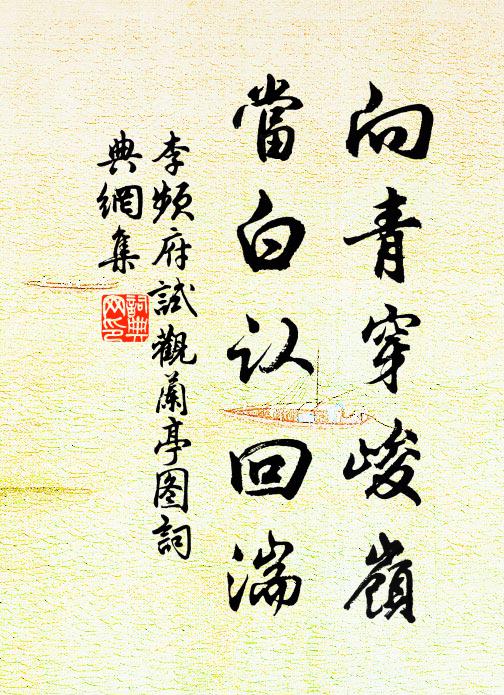 向青穿峻嶺
當白认回湍
李頻府試觀蘭亭图詞
典網集
詞典网印